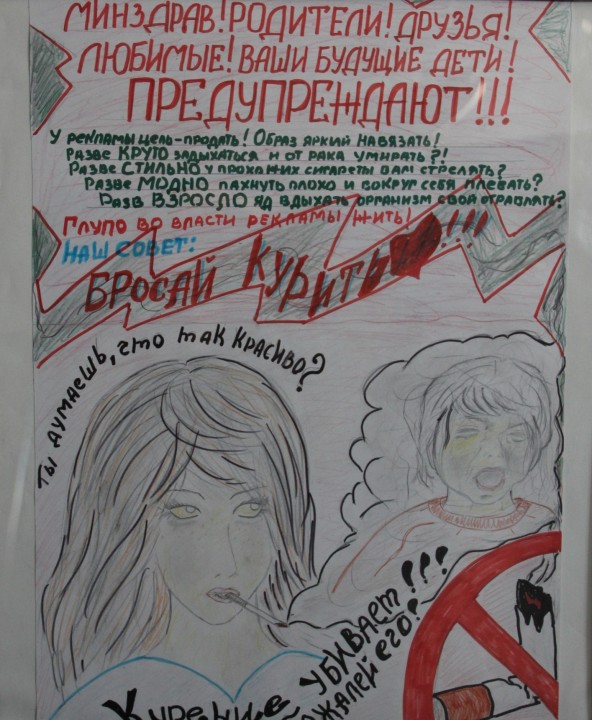 МИНЗДРАВ! РОДИТЕЛИ! ДРУЗЬЯ!
ЛЮБИМЫЕ! ВАШИ БУДУЩИЕ ДЕТИ!
ПРЕДУПРЕЖДАЮТ!!!
У РЕКЛАМЫ ЦЕЛЬ-ПРОДАТЬ! ОБРАЗ ЯРКИЙ НАВЯЗАТЬ!
РАЗВЕ КРУТО ЗАДЫХАТЬСЯ И ОТ РАКА УМИРАТЬ?!
РАЗВЕ СТИЛЬНО У ПРОХОЖИХ СИГАРЕТЫ ВАМ СТРЕЛЯТЬ?
РАЗВЕ МОДНО ПАХНУТЬ ПЛОХО И ВОКРУГ СЕБЯ ПЛЕВАТЬ?
РАЗВ ВЗРОСЛО ЯД ВДЫХАТЬ ОРГАНИЗМ СВОЙ ОТРАВЛЯТЬ?
ГЛУПО ВО ВЛАСТИ РЕКЛАМЫ ЖИТЬ!
НАШ СОВЕТ:
БРОСАЙ КУРИТЬ!!!
ТЫ ДУМАЕШЬ, ЧТО ТАК КРАСИВО?
УБИВАЕТ!!!
ЕГО!